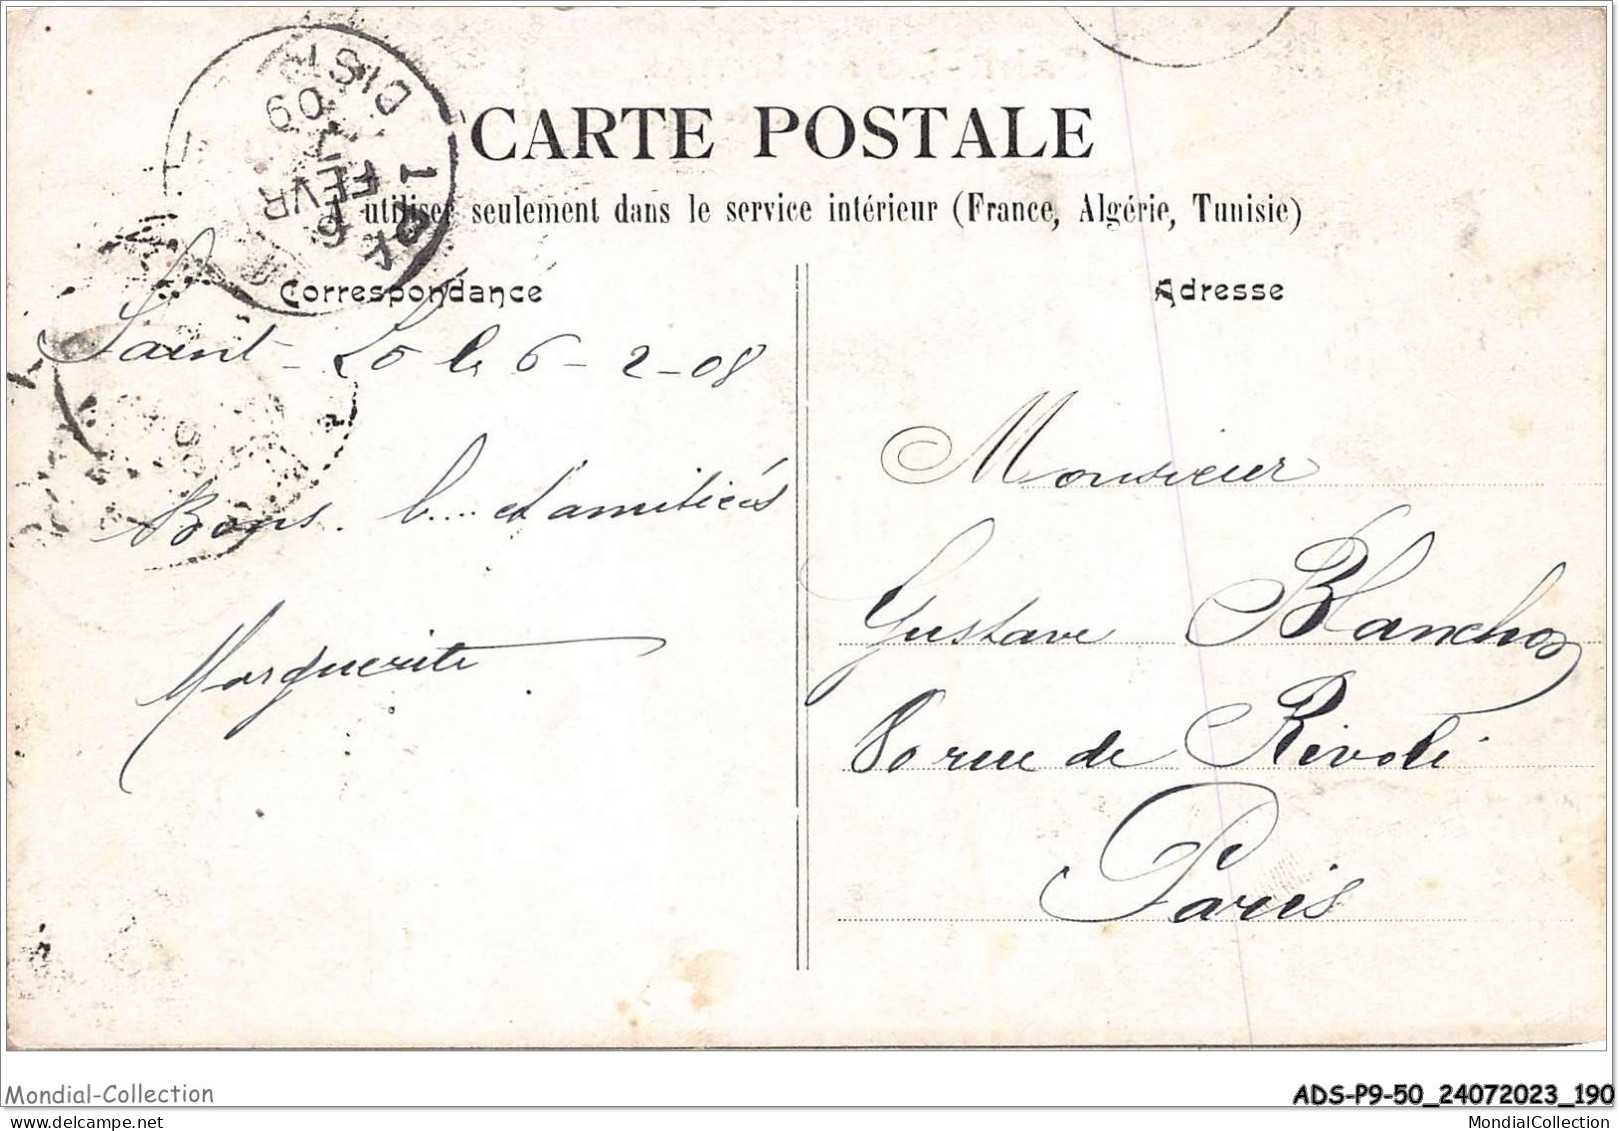 CARTE POSTALE
A utiliser seulement dans le service intérieur (France, Algérie, Tunisie)
Correspondance
Adresse
Saint-Lo le 6-2-08
Bons. b.... et amitiés
Marguerite
Monsieur
Gustave Blanchon
80 rue de Rivoli
Paris
DIST
09
FEVR
6
Mondial-Collection
ADS-P9-50_24072023_190
delcampe.net
MondialCollection